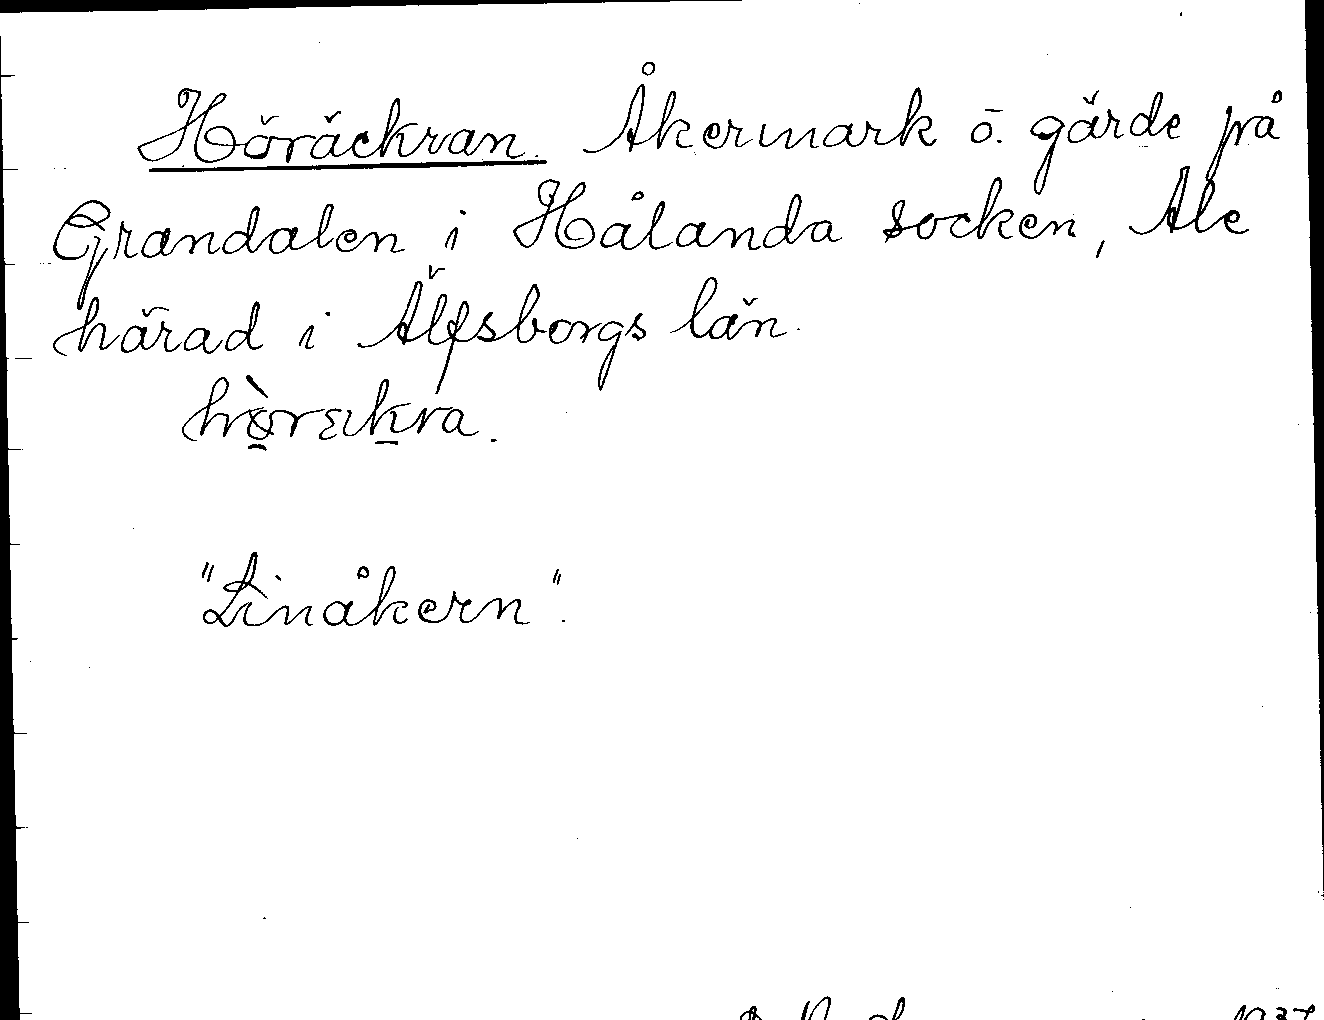 Höräckran. Åkermark o. gärde på
Grandalen i Hålanda socken, Ale
härad i Älfsborgs län.
"Linåkern".